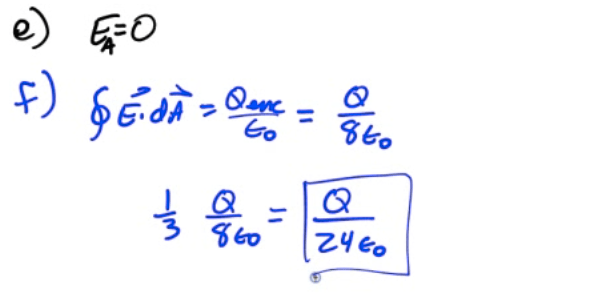 e) E_A=0
f) ∮E⃗·dA⃗ = Qenc/ε₀ = Q/8ε₀
1/3 Q/8ε₀ = Q/24ε₀